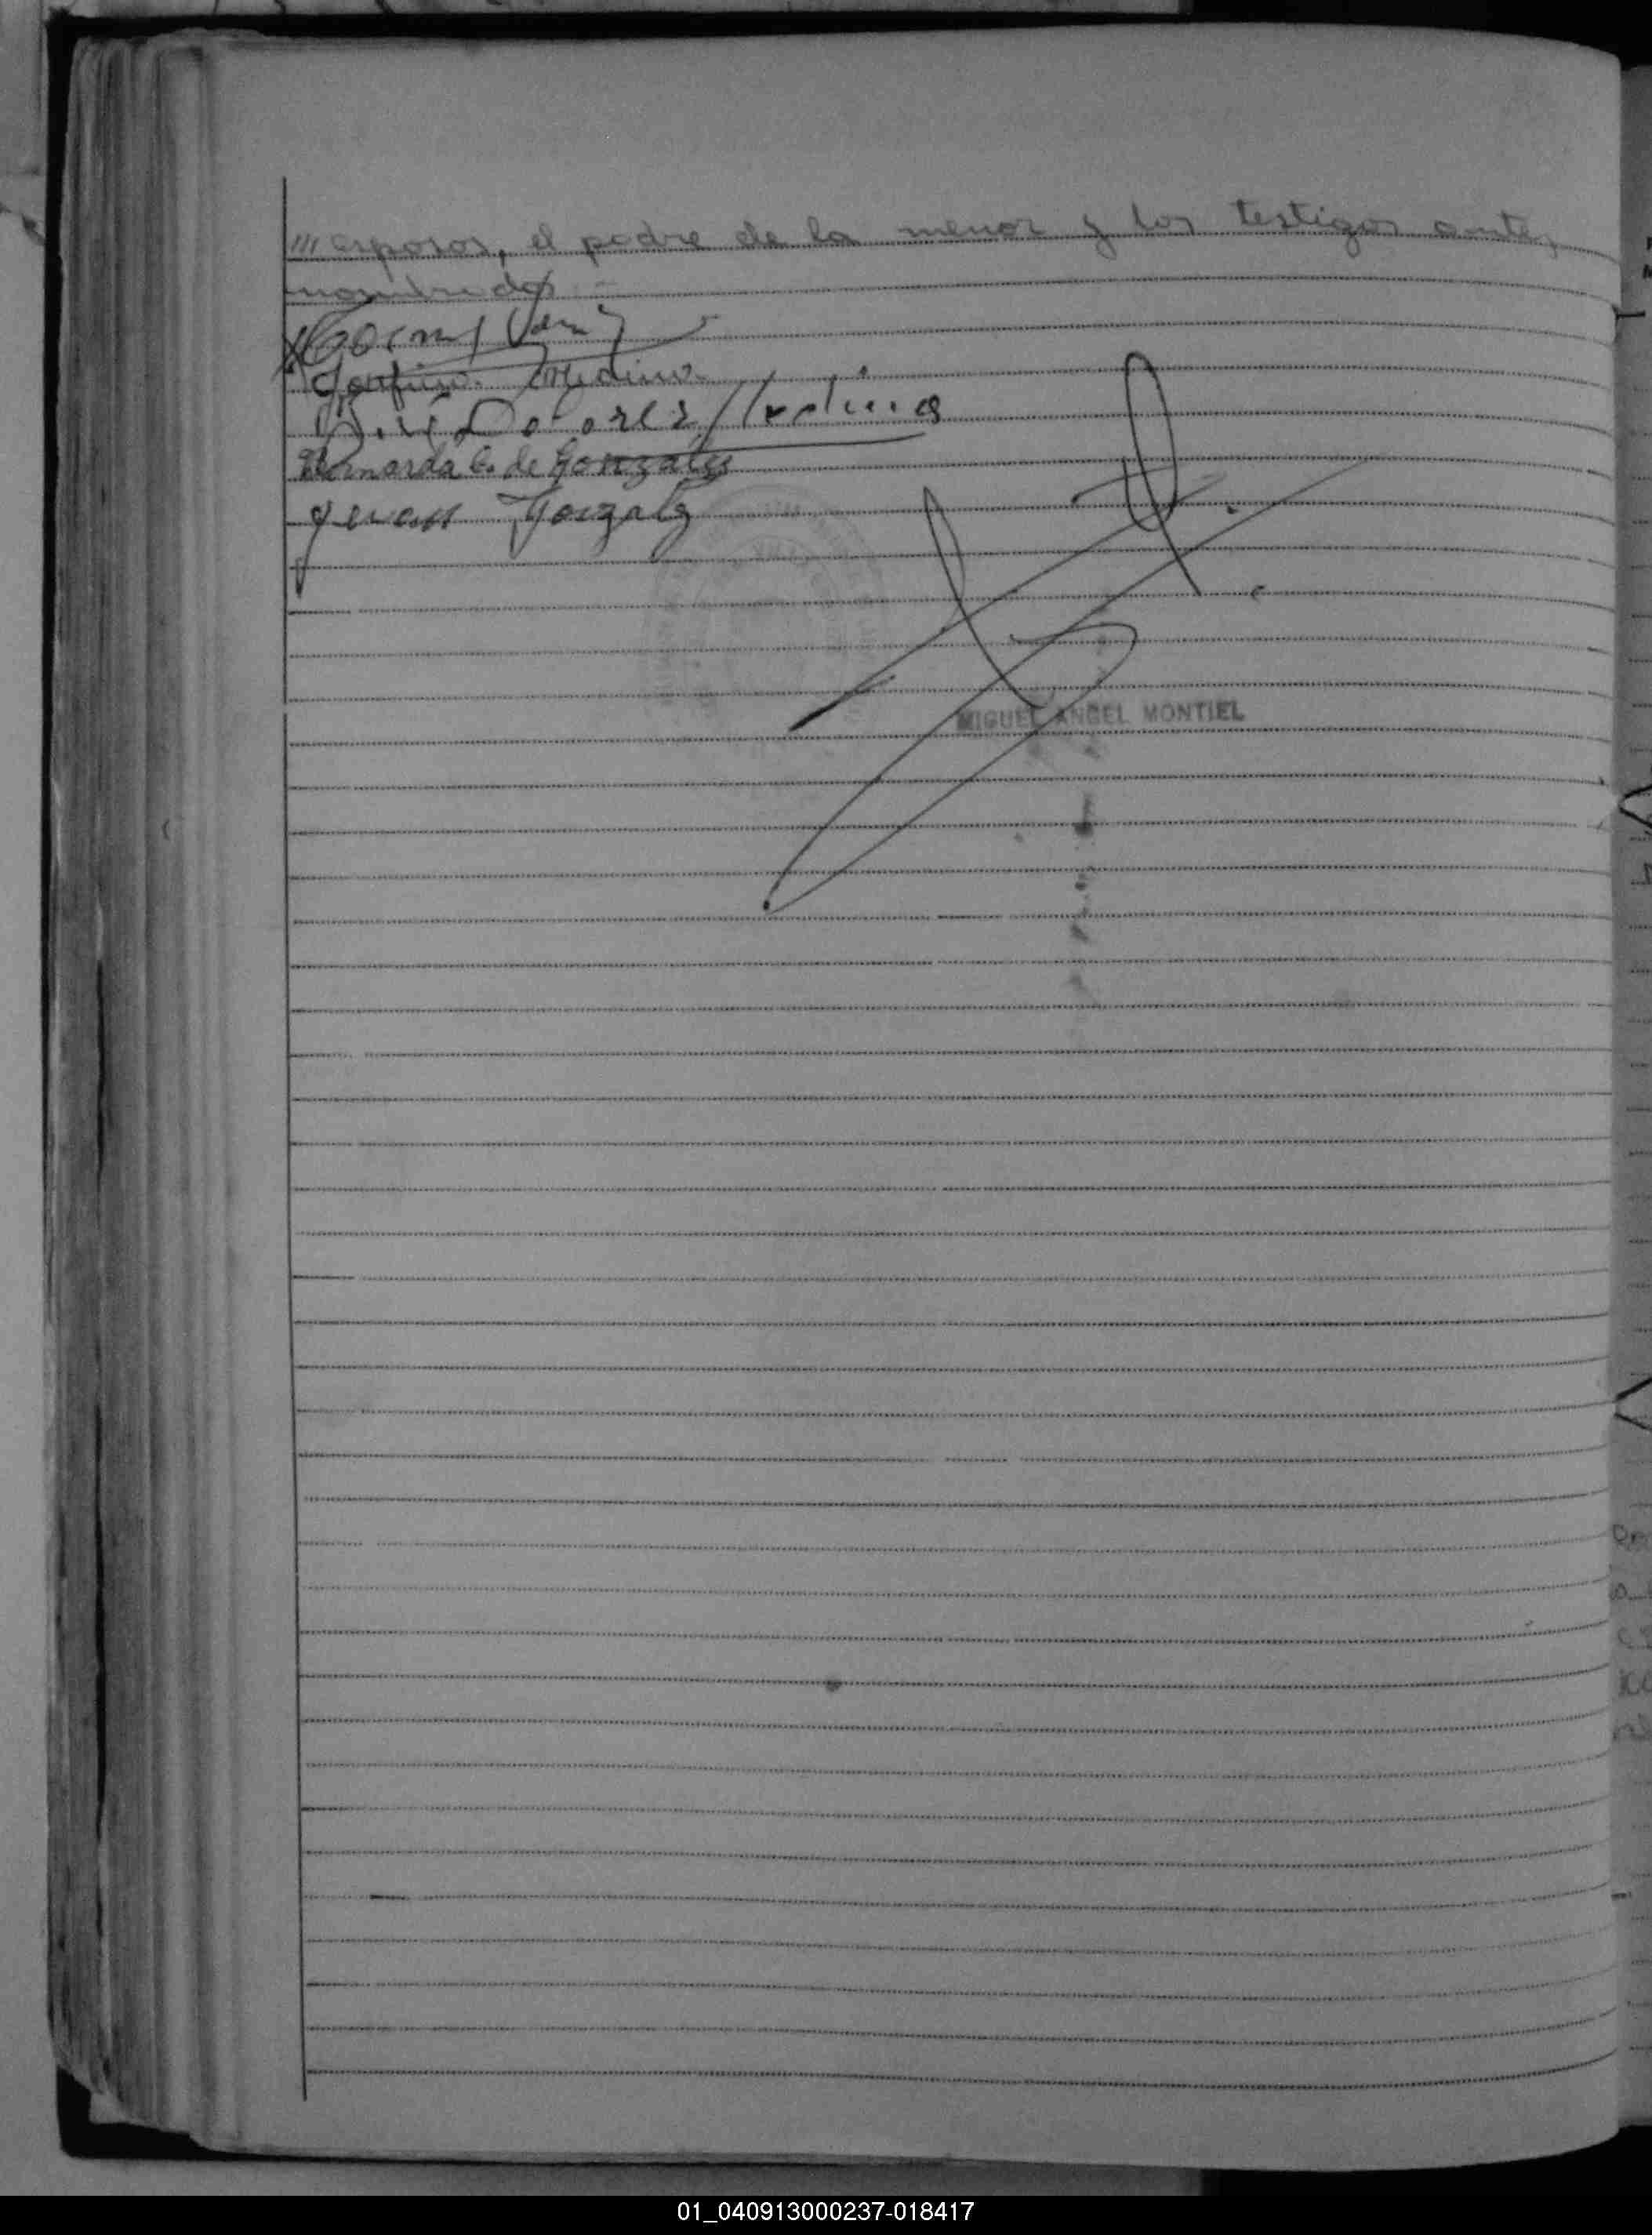 /// esposos, el padre de la menor y los testigos antes
nombrados.-
Medina
José Dolores Medina
Bernarda G. de Gonzalez
Gonzalez
MIGUEL ANGEL MONTIEL
01_040913000237-018417